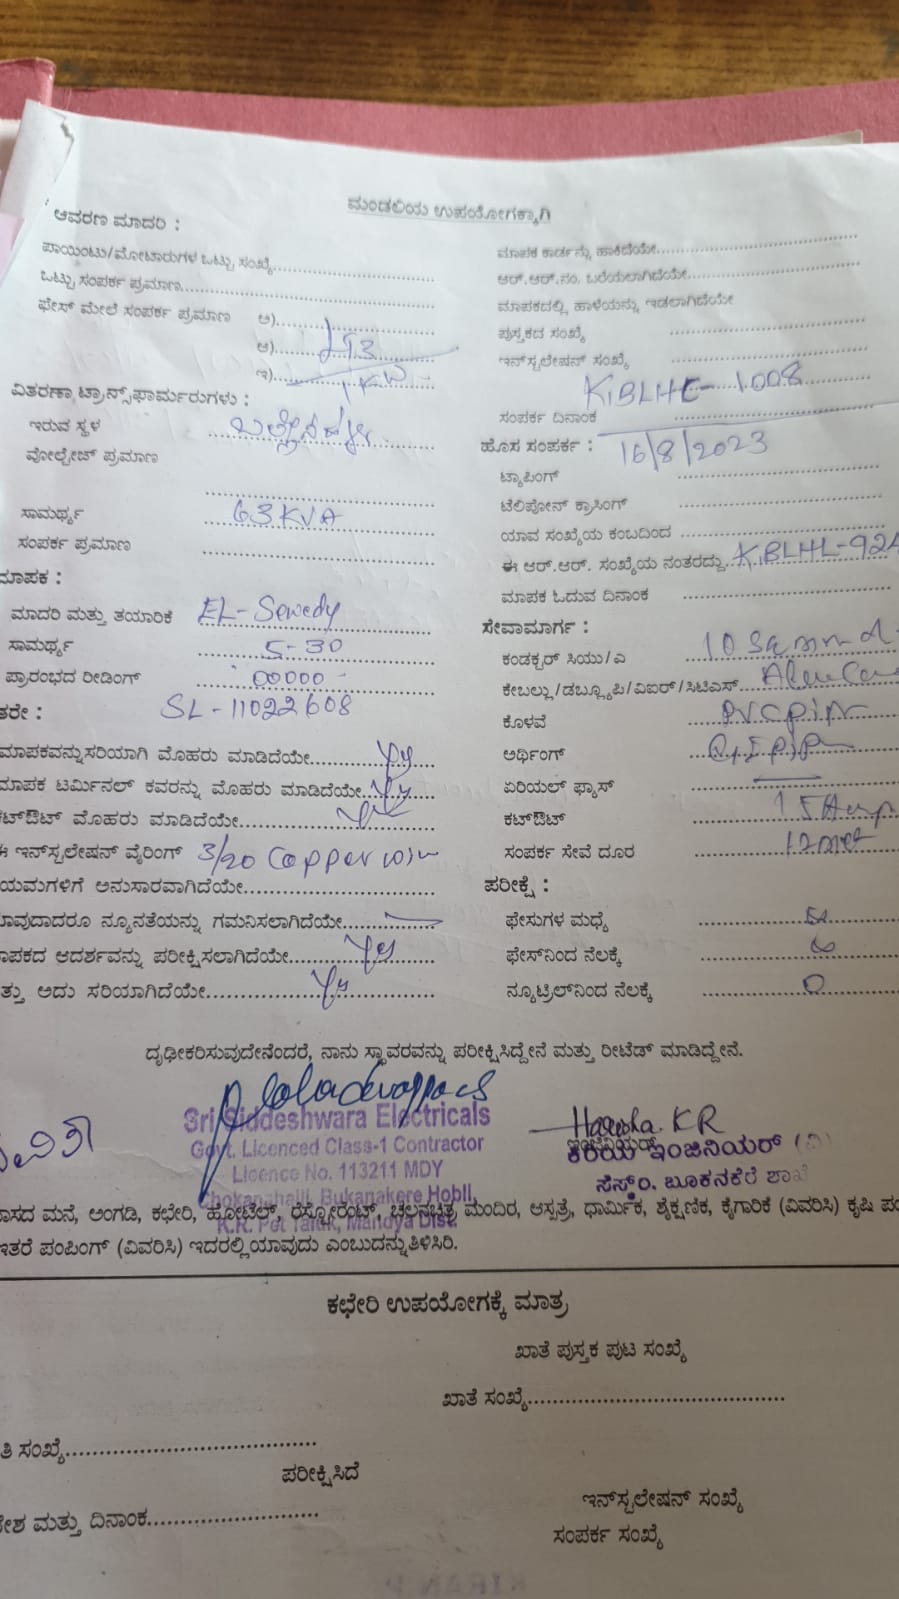 ಮಂಡಲಿಯ ಉಪಯೋಗಕ್ಕಾಗಿ
ಆವರಣ ಮಾದರಿ :
ಪಾಯಿಂಟು/ಮೋಟಾರುಗಳ ಒಟ್ಟು ಸಂಖ್ಯೆ
ಒಟ್ಟು ಸಂಪರ್ಕ ಪ್ರಮಾಣ
ಫೇಸ್ ಮೇಲೆ ಸಂಪರ್ಕ ಪ್ರಮಾಣ ಅ)
ಆ)
ಇ) 1 KW
ವಿತರಣಾ ಟ್ರಾನ್ಸ್‌ಫಾರ್ಮರುಗಳು :
ಇರುವ ಸ್ಥಳ
ವೋಲ್ಟೇಜ್ ಪ್ರಮಾಣ
ಸಾಮರ್ಥ್ಯ 63 KVA
ಸಂಪರ್ಕ ಪ್ರಮಾಣ
ಮಾಪಕ :
ಮಾದರಿ ಮತ್ತು ತಯಾರಿಕೆ EL-Sewedy
ಸಾಮರ್ಥ್ಯ 5-30
ಪ್ರಾರಂಭದ ರೀಡಿಂಗ್ 00000
ತರೇ : SL-11022608
ಮಾಪಕವನ್ನು ಸರಿಯಾಗಿ ಮೊಹರು ಮಾಡಿದೆಯೇ
ಮಾಪಕ ಟರ್ಮಿನಲ್ ಕವರನ್ನು ಮೊಹರು ಮಾಡಿದೆಯೇ
ಕಟ್‌ಔಟ್ ಮೊಹರು ಮಾಡಿದೆಯೇ
ಈ ಇನ್‌ಸ್ಟಲೇಷನ್ ವೈರಿಂಗ್ 3/20 Copper
ಯಮಗಳಿಗೆ ಅನುಸಾರವಾಗಿದೆಯೇ
ಯಾವುದಾದರೂ ನ್ಯೂನತೆಯನ್ನು ಗಮನಿಸಲಾಗಿದೆಯೇ
ಮಾಪಕದ ಆದರ್ಶವನ್ನು ಪರೀಕ್ಷಿಸಲಾಗಿದೆಯೇ Yes
ತ್ತು ಅದು ಸರಿಯಾಗಿದೆಯೇ Yes
ಮಾಪಕ ಕಾರ್ಡನ್ನು ಹಾಕಿದೆಯೇ
ಆರ್.ಆರ್.ನಂ. ಬರೆಯಲಾಗಿದೆಯೇ
ಮಾಪಕದಲ್ಲಿ ಹಾಳೆಯನ್ನು ಇಡಲಾಗಿದೆಯೇ
ಪುಸ್ತಕದ ಸಂಖ್ಯೆ
ಇನ್‌ಸ್ಟಲೇಷನ್ ಸಂಖ್ಯೆ
KiBLHL-1008
ಸಂಪರ್ಕ ದಿನಾಂಕ
ಹೊಸ ಸಂಪರ್ಕ : 16/8/2023
ಟ್ಯಾಪಿಂಗ್
ಟೆಲಿಪೋನ್ ಕ್ರಾಸಿಂಗ್
ಯಾವ ಸಂಖ್ಯೆಯ ಕಂಬದಿಂದ
ಈ ಆರ್.ಆರ್. ಸಂಖ್ಯೆಯ ನಂತರದ್ದು KiBLHL-924
ಮಾಪಕ ಓದುವ ದಿನಾಂಕ
ಸೇವಾಮಾರ್ಗ :
ಕಂಡಕ್ಟರ್ ಸಿಯು/ಎ 10 Sq mm
ಕೇಬಲ್ಲು/ಡಬ್ಲ್ಯೂಪಿ/ವಿಐಆರ್/ಸಿಟಿಎಸ್
ಕೊಳವೆ PVC pipe
ಅರ್ಥಿಂಗ್ G.I pipe
ಏರಿಯಲ್ ಫ್ಯೂಸ್
ಕಟ್‌ಔಟ್ 15 Amp
ಸಂಪರ್ಕ ಸೇವೆ ದೂರ 12 met
ಪರೀಕ್ಷೆ :
ಫೇಸುಗಳ ಮಧ್ಯೆ
ಫೇಸ್‌ನಿಂದ ನೆಲಕ್ಕೆ
ನ್ಯೂಟ್ರಿಲ್‌ನಿಂದ ನೆಲಕ್ಕೆ 0
ದೃಢೀಕರಿಸುವುದೇನೆಂದರೆ, ನಾನು ಸ್ಥಾವರವನ್ನು ಪರೀಕ್ಷಿಸಿದ್ದೇನೆ ಮತ್ತು ರೀಟೆಡ್ ಮಾಡಿದ್ದೇನೆ.
Sri Siddeshwara Electricals
Govt. Licenced Class-1 Contractor
Licence No. 113211 MDY
Chokanahalli, Bukanakere Hobli,
K.R. Pet Taluk, Mandya Dist.
Harsha. K R
ಕಿರಿಯ ಇಂಜಿನಿಯರ್ (ವಿ)
ಸೆಸ್ಕ್‌ಂ. ಬೂಕನಕೆರೆ ಶಾಖೆ
ವಾಸದ ಮನೆ, ಅಂಗಡಿ, ಕಛೇರಿ, ಹೋಟೆಲ್, ರೆಸ್ಟೋರೆಂಟ್, ಚಲನಚಿತ್ರ ಮಂದಿರ, ಆಸ್ಪತ್ರೆ, ಧಾರ್ಮಿಕ, ಶೈಕ್ಷಣಿಕ, ಕೈಗಾರಿಕೆ (ವಿವರಿಸಿ) ಕೃಷಿ ಪಂ
ಇತರೆ ಪಂಪಿಂಗ್ (ವಿವರಿಸಿ) ಇದರಲ್ಲಿ ಯಾವುದು ಎಂಬುದನ್ನು ತಿಳಿಸಿರಿ.
ಕಛೇರಿ ಉಪಯೋಗಕ್ಕೆ ಮಾತ್ರ
ಖಾತೆ ಪುಸ್ತಕ ಪುಟ ಸಂಖ್ಯೆ
ಖಾತೆ ಸಂಖ್ಯೆ
ತಿ ಸಂಖ್ಯೆ
ಪರೀಕ್ಷಿಸಿದೆ
ದೇಶ ಮತ್ತು ದಿನಾಂಕ
ಇನ್‌ಸ್ಟಲೇಷನ್ ಸಂಖ್ಯೆ
ಸಂಪರ್ಕ ಸಂಖ್ಯೆ